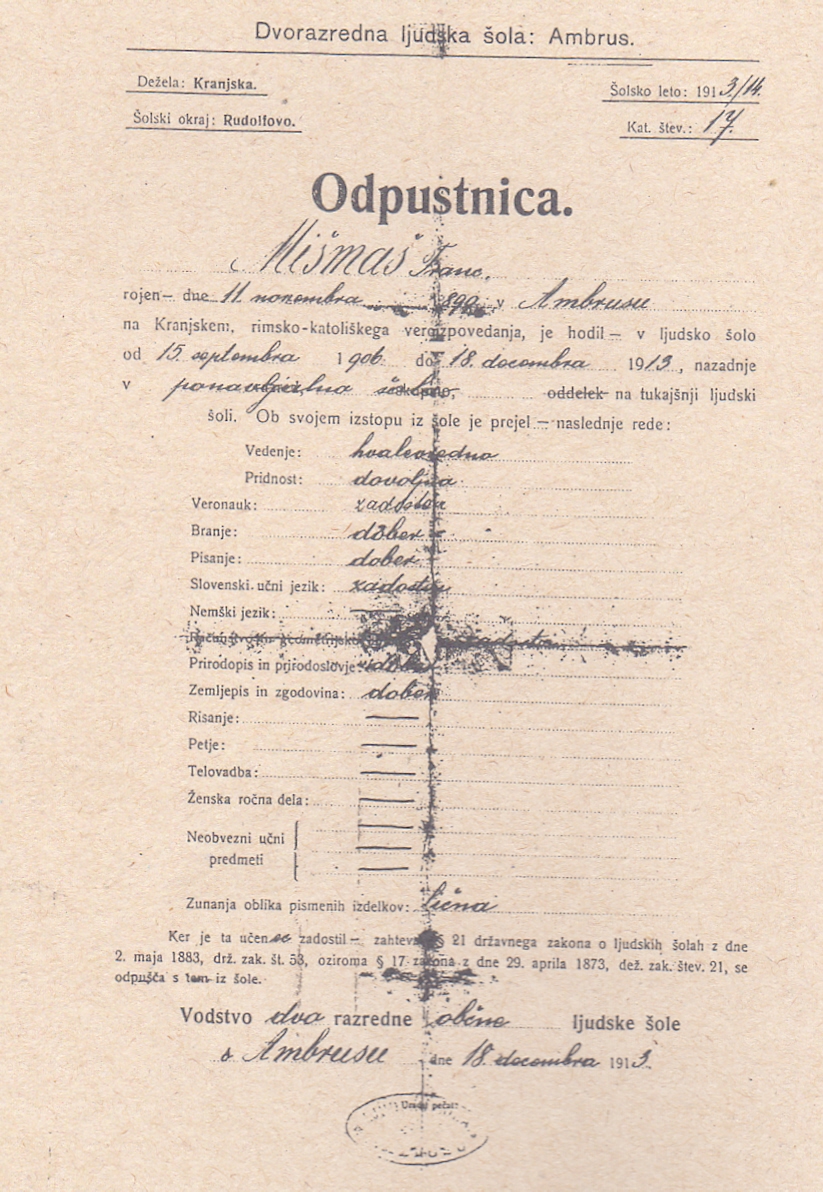 Dvorazredna ljudska šola: Ambrus.
Dežela: Kranjska.
Šolsko leto: 1913/14.
Šolski okraj: Rudolfovo.
Kat. štev.: 17.
Odpustnica.
Mišmaš Franc.
rojen — dne 11. novembra 899 v Ambrusu
na Kranjskem, rimsko-katoliškega veroizpovedanja, je hodil — v ljudsko šolo
od 15. septembra 1906 do 18. decembra 1913, nazadnje
v ponavljalno oddelek na tukajšnji ljudski
šoli. Ob svojem izstopu iz šole je prejel — naslednje rede:
Vedenje: hvalevredno
Pridnost: dovoljna
Veronauk: zadosten
Branje: dober
Pisanje: dober
Slovenski učni jezik: zadosten
Nemški jezik: —
Prirodopis in prirodoslovje: dober
Zemljepis in zgodovina: dober
Risanje: —
Petje: —
Telovadba: —
Ženska ročna dela: —
Neobvezni učni predmeti — — —
Zunanja oblika pismenih izdelkov: lična
Ker je ta učenec zadostil — zahtevam § 21 državnega zakona o ljudskih šolah z dne
2. maja 1883, drž. zak. št. 53, oziroma § 17 zakona z dne 29. aprila 1873, dež. zak. štev. 21, se
odpušča s tem iz šole.
Vodstvo dvo razredne občne ljudske šole
v Ambrusu dne 18. decembra 1913.
Uradni pečat: